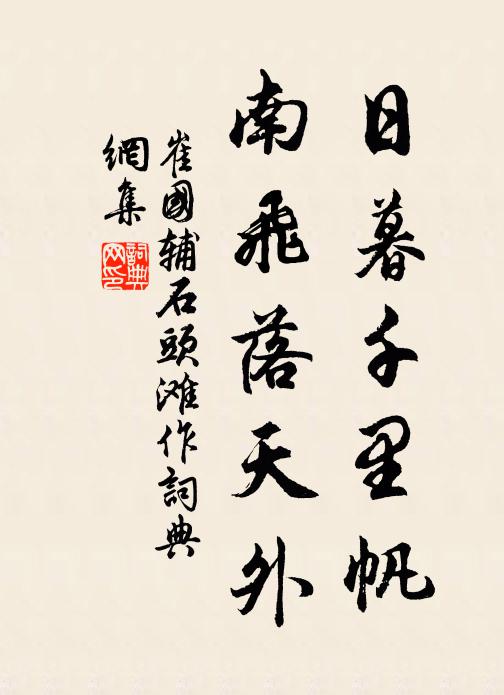 日暮千里帆
南飛落天外
崔國輔石頭滩作詞典
網集
詞典網印